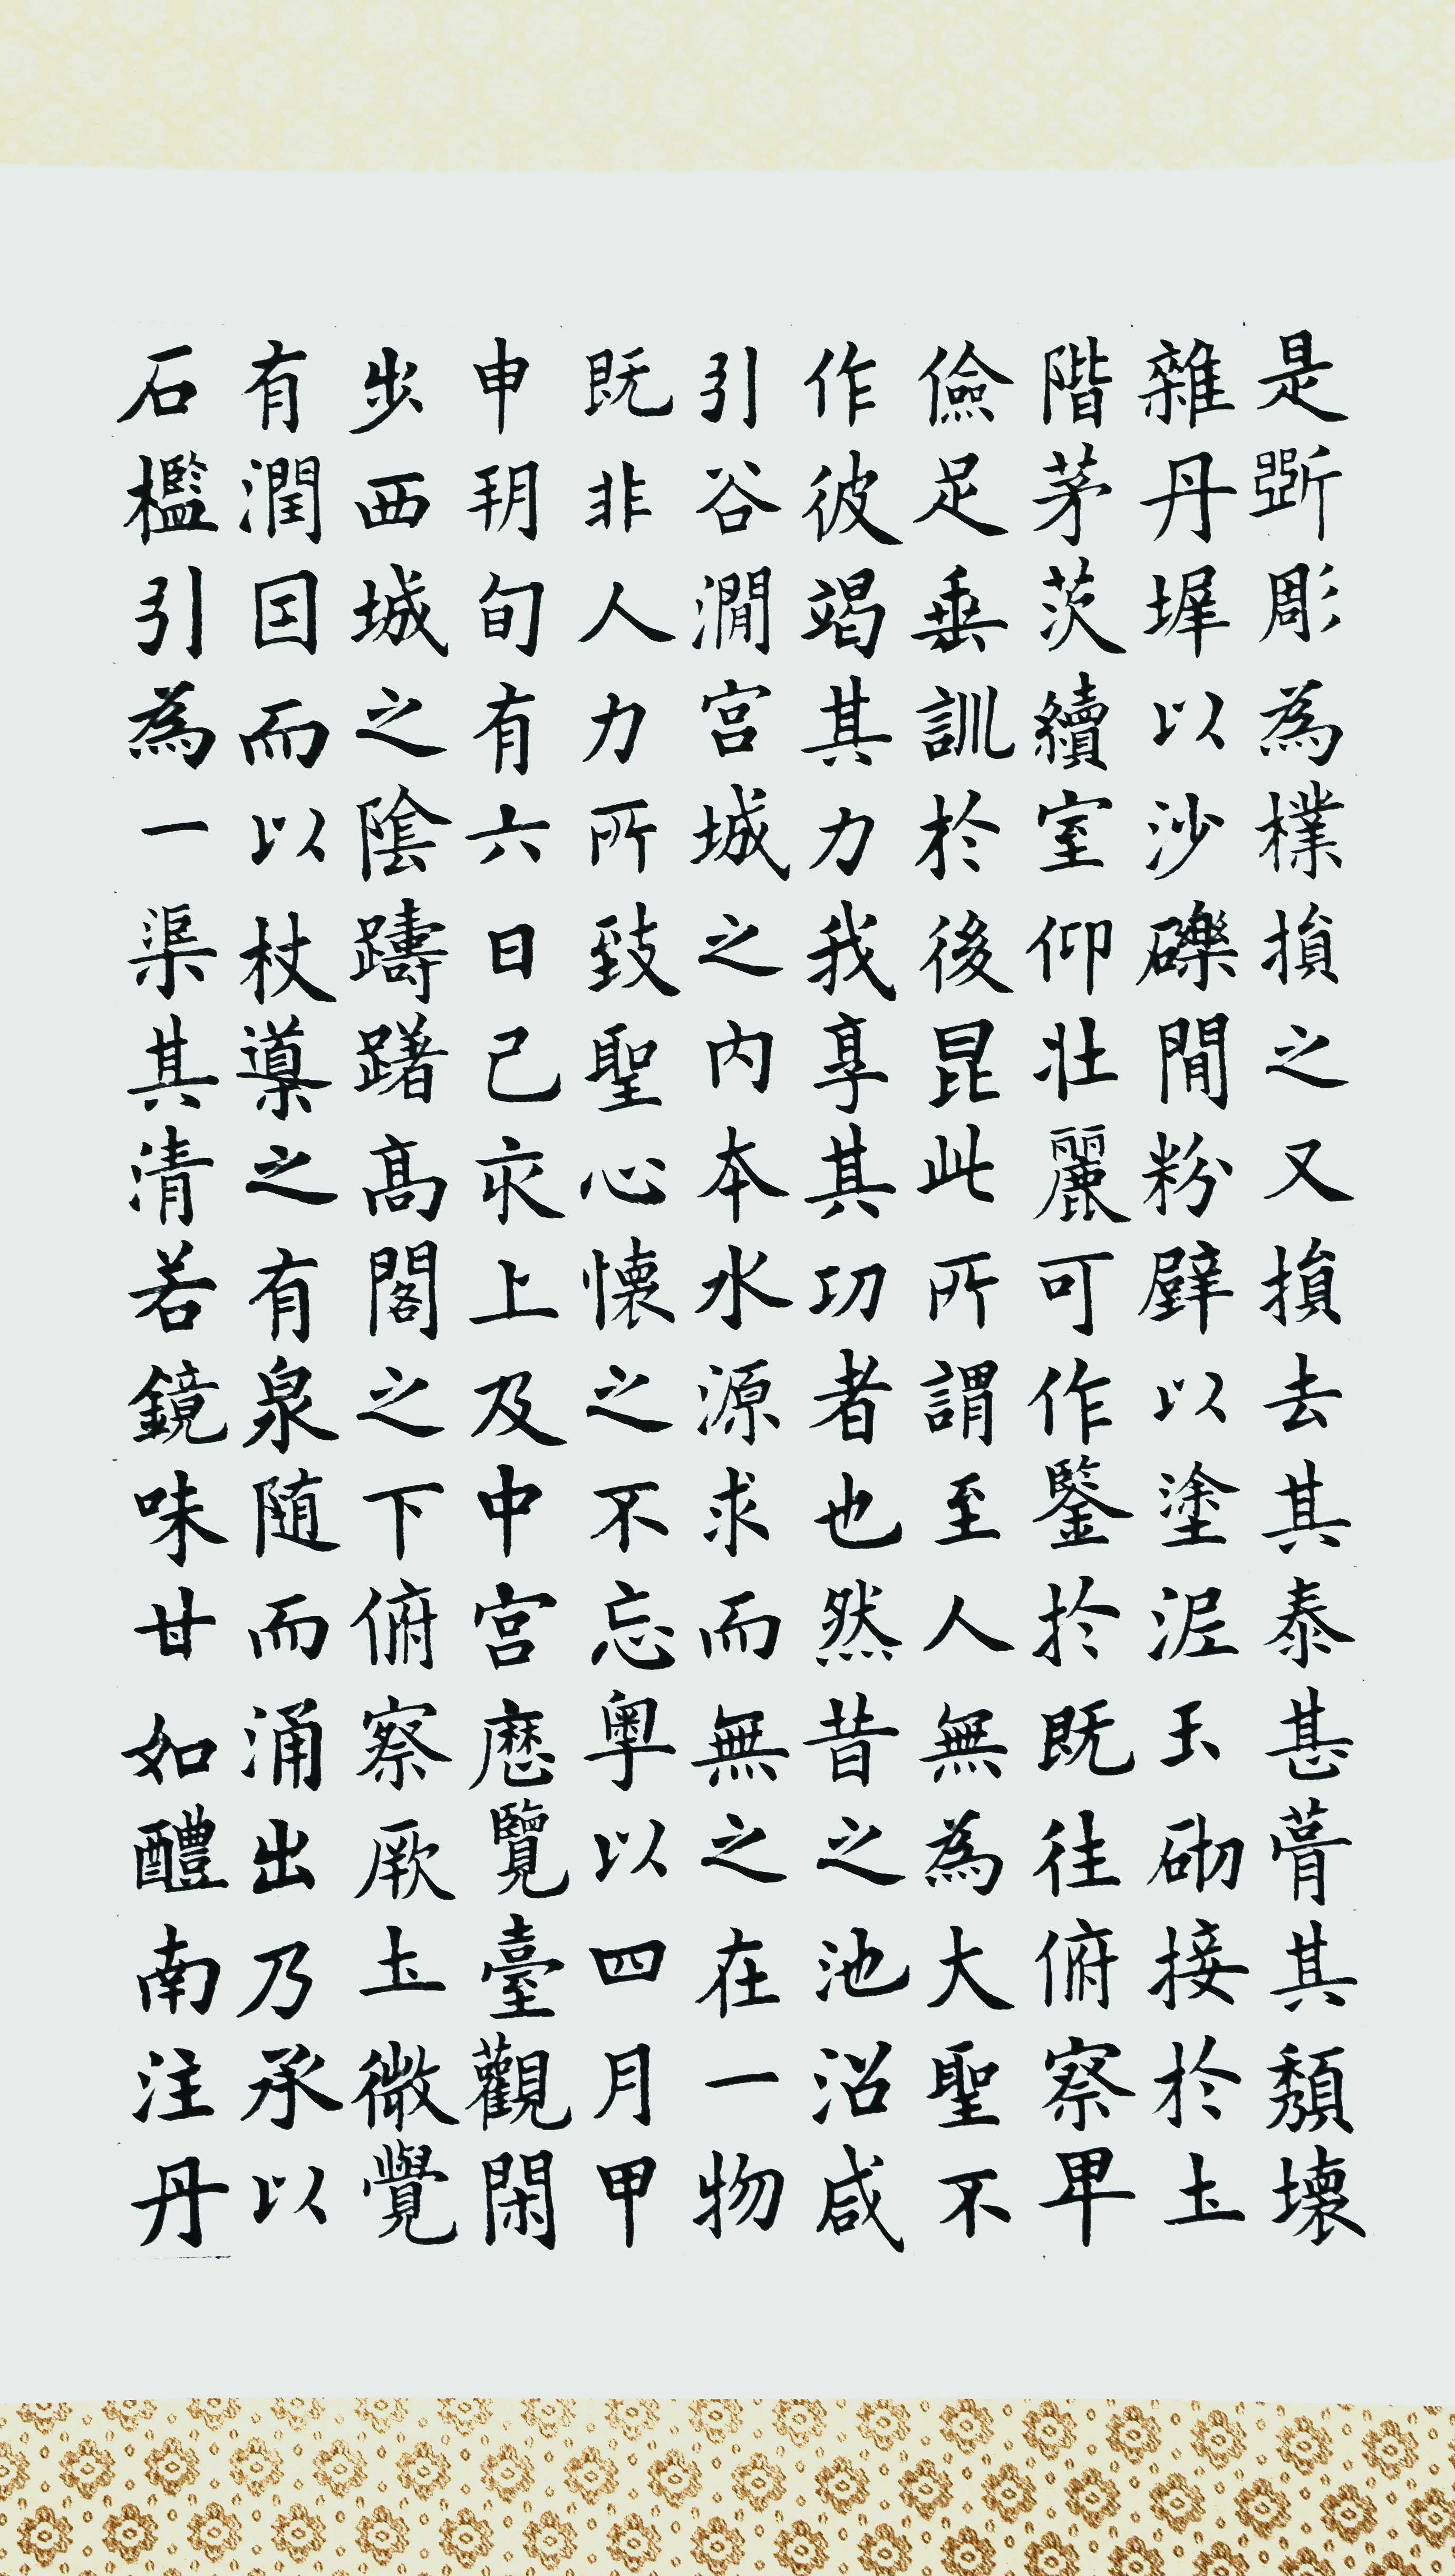 是斵彫為樸損之又損去其泰甚葺其頹壞
雜丹墀以沙礫間粉壁以塗泥玉砌接於土
階茅茨續室仰壯麗可作鑒於既往俯察卑
儉足垂訓於後昆此所謂至人無為大聖不
作彼竭其力我享其功者也然昔之池沼咸
引谷澗宮城之內本水源求而無之在一物
既非人力所致聖心懷之不忘粵以四月甲
申朔旬有六日己亥上及中宮歷覽臺觀閑
步西城之陰躊躇高閣之下俯察厥土微覺
有潤因而以杖導之有泉隨而涌出乃承以
石檻引為一渠其清若鏡味甘如醴南注丹